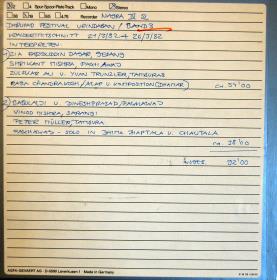 Spur/Spool/Plate/Track Mono Stereo
Recorder NAGRA IV S
DHRUPAD FESTIVAL VRINDABAN / BAND 3
KONZERTMITSCHNITT 21/3/82 + 26/3/82
INTERPRETEN:
1) ZIA FARIDUDDIN DAGAR, GESANG
SHRIKANT MISHRA, PAKHAWAJ
ZULFIKAR ALI U. YVAN TRUNZLER, TAMPURAS
RAGA CHANDRAKOSH / ALAP U. KOMPOSITION (DHAMAR) ca. 54'00
2) BABULALJI U. DINESHPRASAD / PAKHAWAJ
VINOD MISHRA, SARANGI
PETER MÜLLER, TAMPURA
PAKHAWAJ - SOLO IN CHAUTALA
ca. 38'00
92'00
AGFA-GEVAERT AG D-5090 Leverkusen 1 Made in Germany